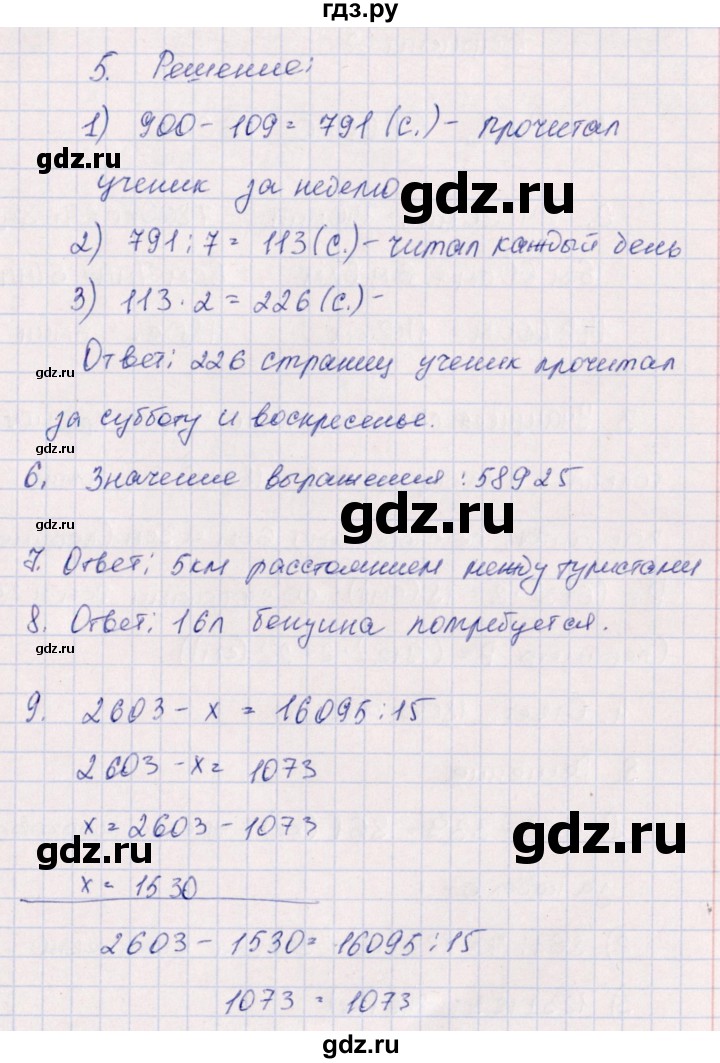 гдз.ру
5. Решение:
1) 900 - 109 = 791 (с.) - прочитал
gdz.ru
ученик за неделю
gdz.ru
2) 791 : 7 = 113 (с.) - читал каждый день
3) 113 · 2 = 226 (с.) -
Ответ: 226 страниц ученик прочитал
gdz.ru
за субботу и воскресенье.
gdz.ru
6. Значение выражения: 58925
gdz.ru
gdz.ru
7. Ответ: 5км расстоянием между туристами
8. Ответ: 16л бензина потребуется.
gdz.ru
9. 2603 - x = 16095 : 15
2603 - x = 1073
x = 2603 - 1073
gdz.ru
gdz.ru
x = 1530
2603 - 1530 = 16095 : 15
1073 = 1073
gdz.ru
gdz.ru